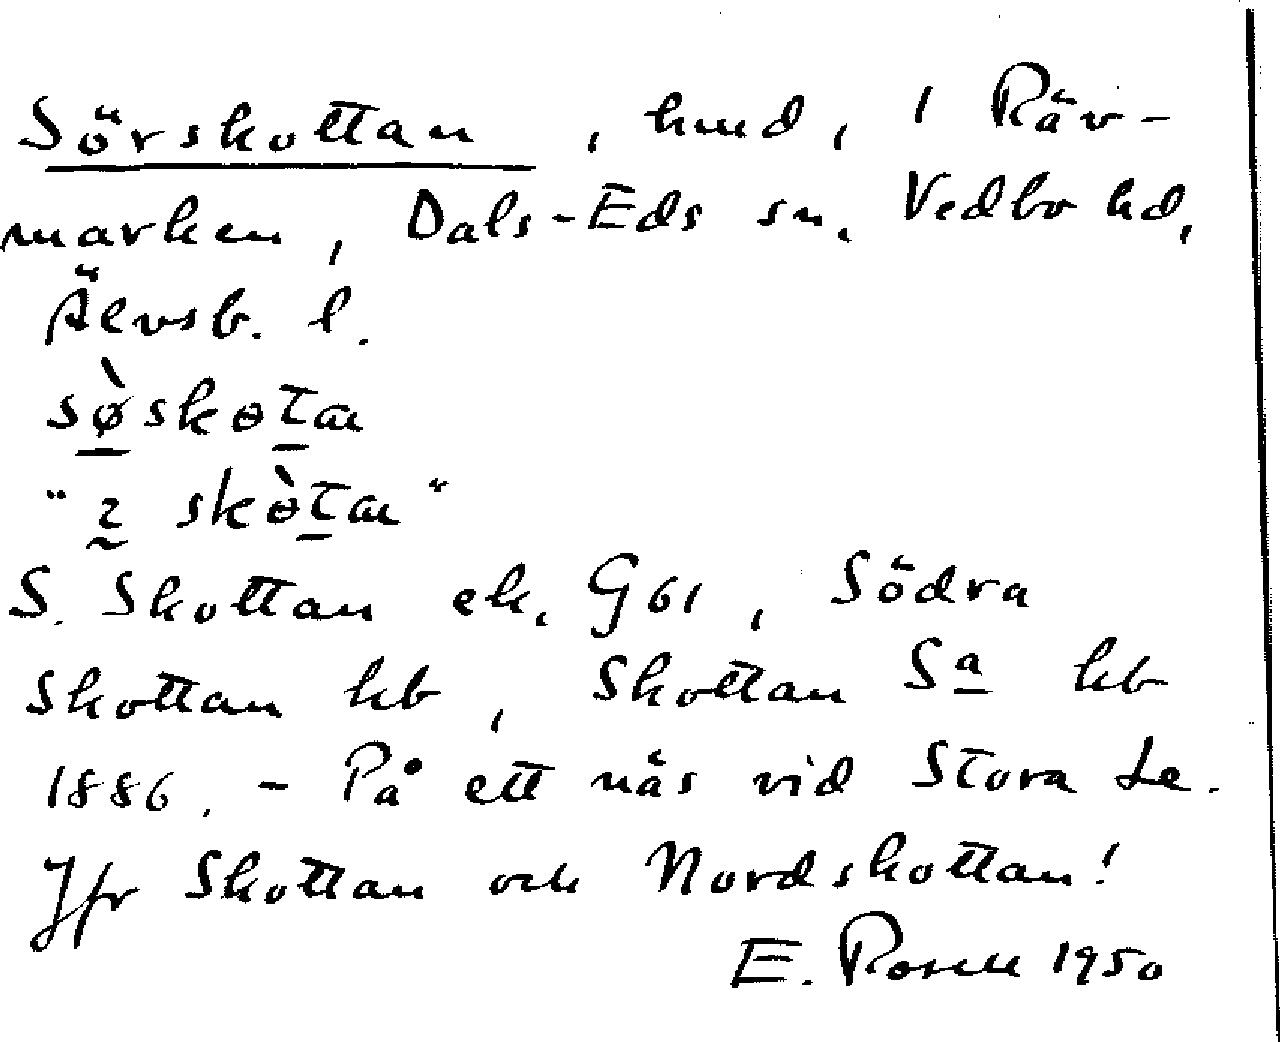 Sörskottan, hmd, 1 Räv-
marken, Dals-Eds sn, Vedbo hd,
Älvsb. l.
sø̀skɵta
"  skɵ̀ta"
S. Skottan ek. G61, Södra
Skottan kb, Skottan Sa kb
1886. - På ett näs vid Stora Le.
Jfr Skottan och Nordskottan!
E. Rosell 1950